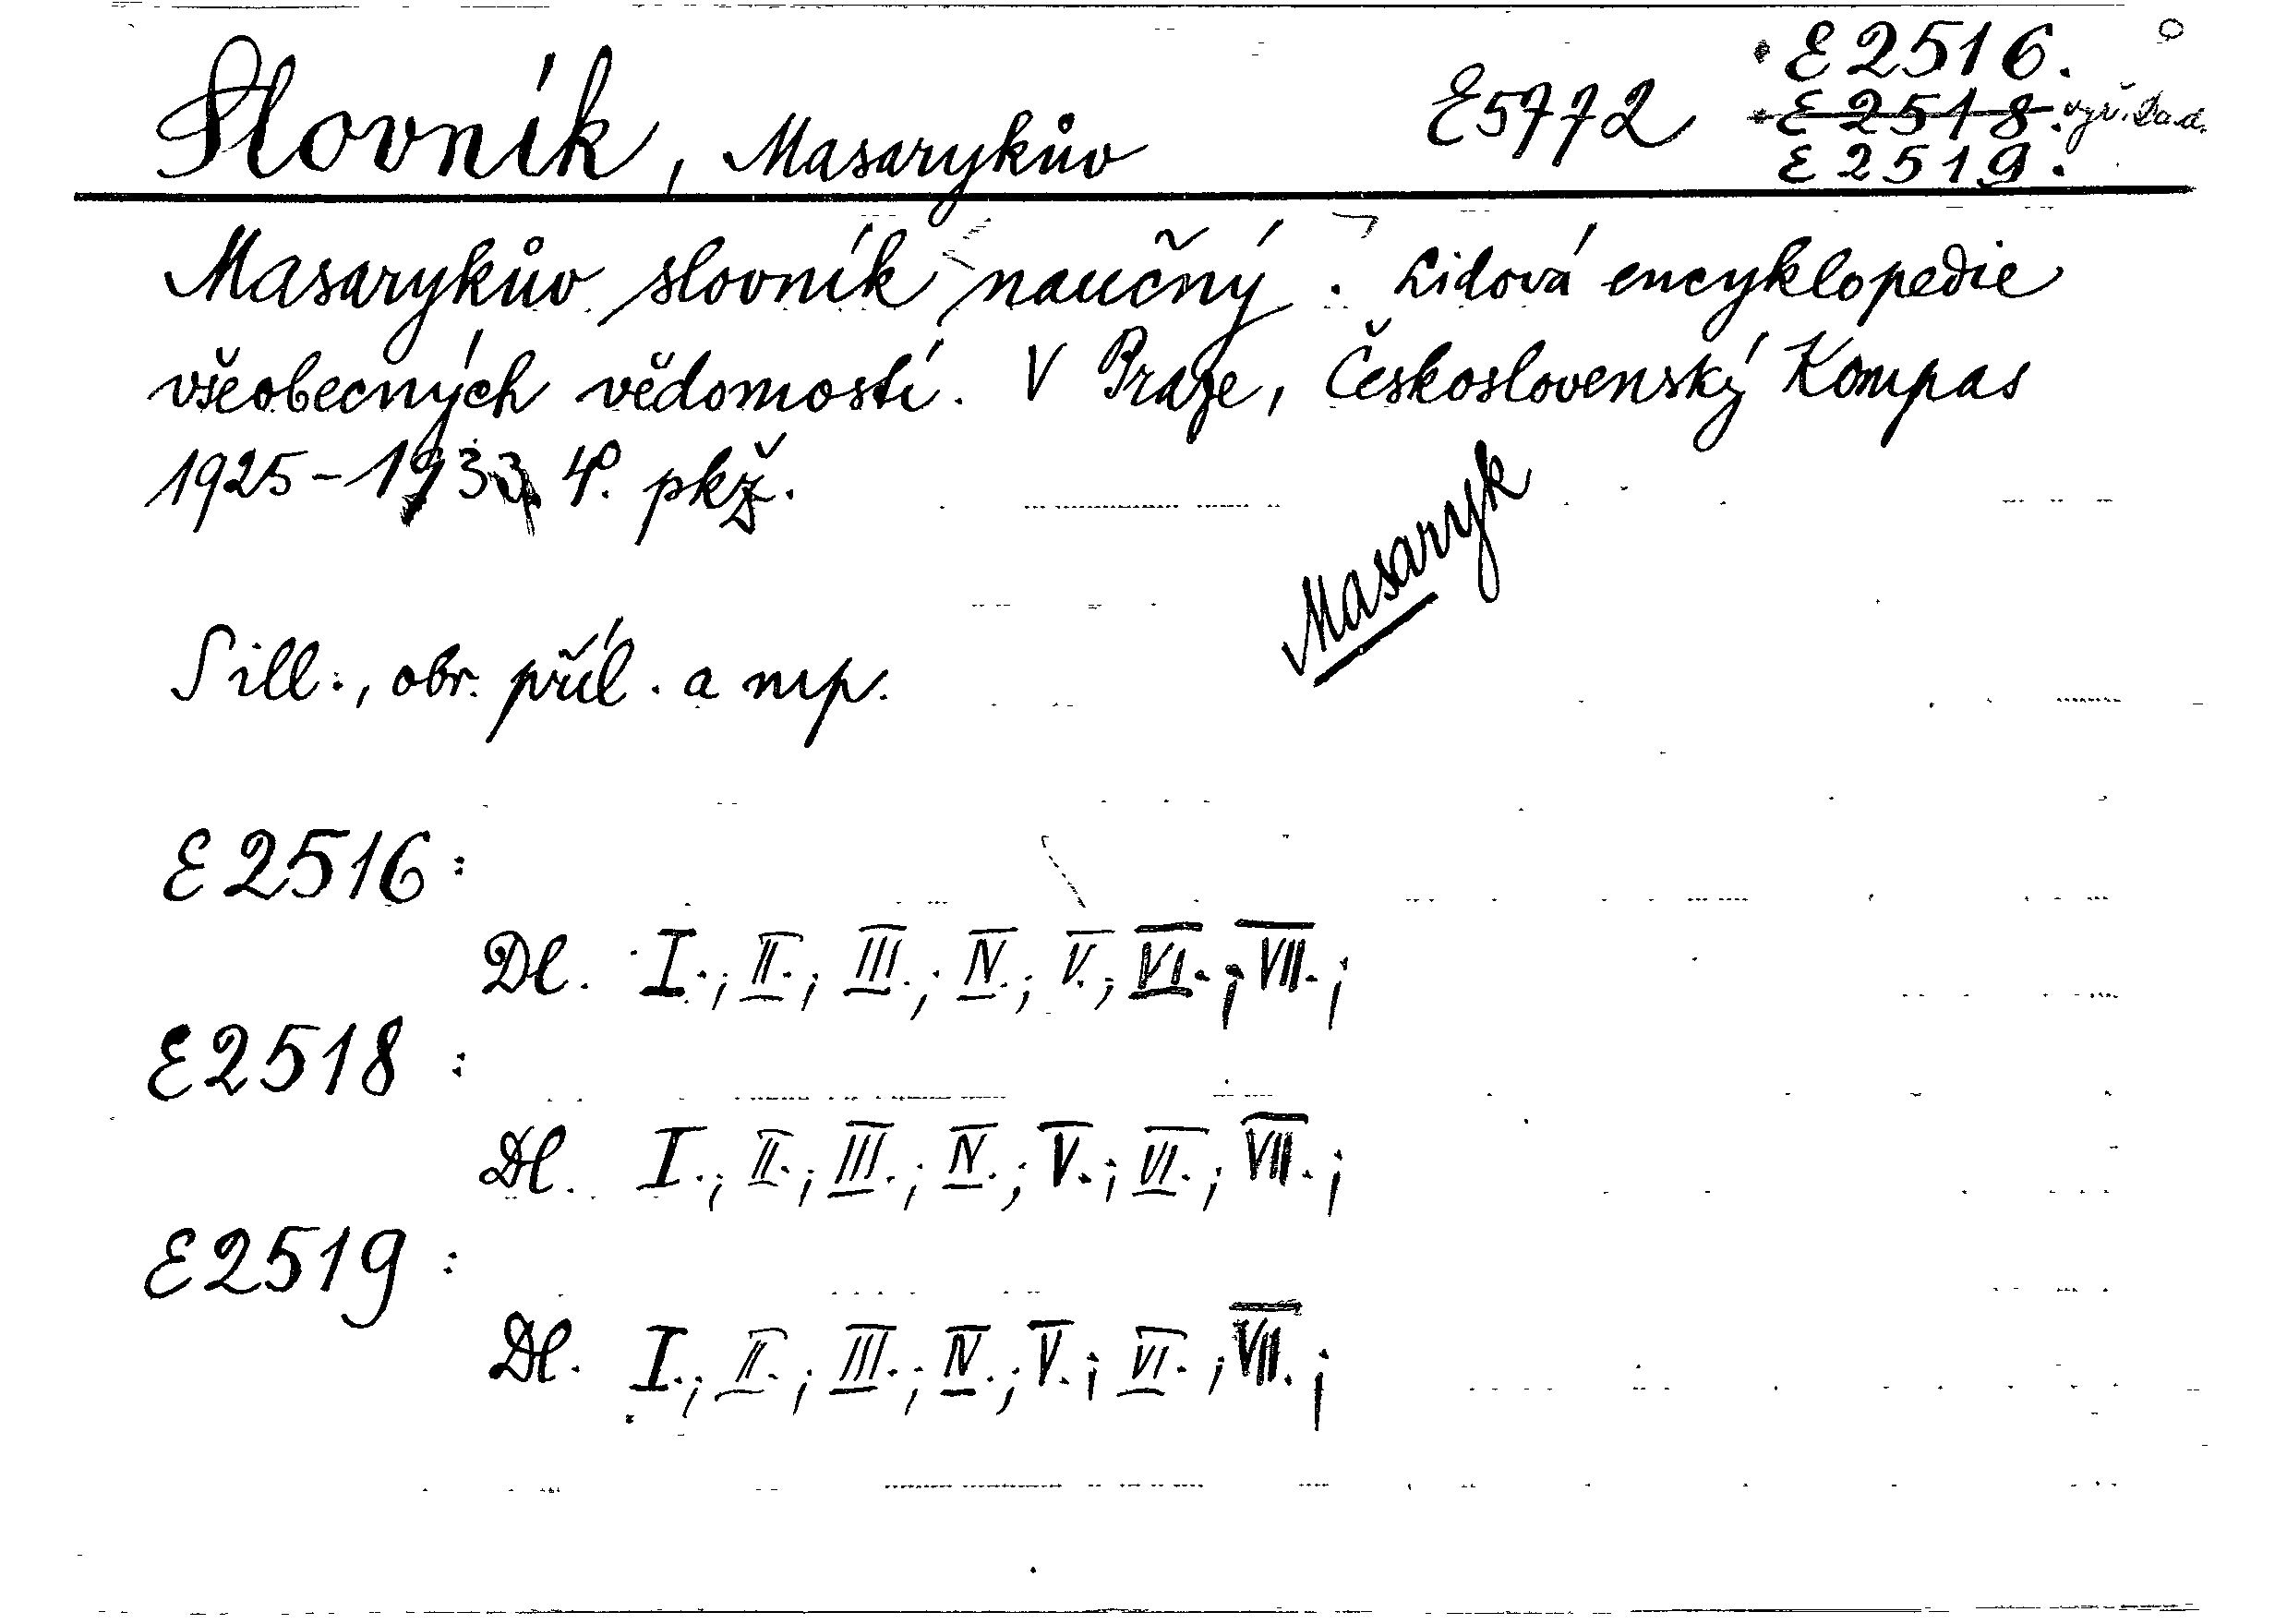 Slovník, Masarykův E5772 E2516.
E2518.
E2519.
Masarykův slovník naučný. Lidová encyklopedie
všeobecných vědomostí. V Praze, Československý Kompas
1925-1933 4°. pkž.
Masaryk
S ill., obr. příl. a mp.
E2516:
Dl. I.; II.; III.; IV.; V.; VI.; VII.;
E2518:
Dl. I.; II.; III.; IV.; V.; VI.; VII.;
E2519:
Dl. I.; II.; III.; IV.; V.; VI.; VII.;